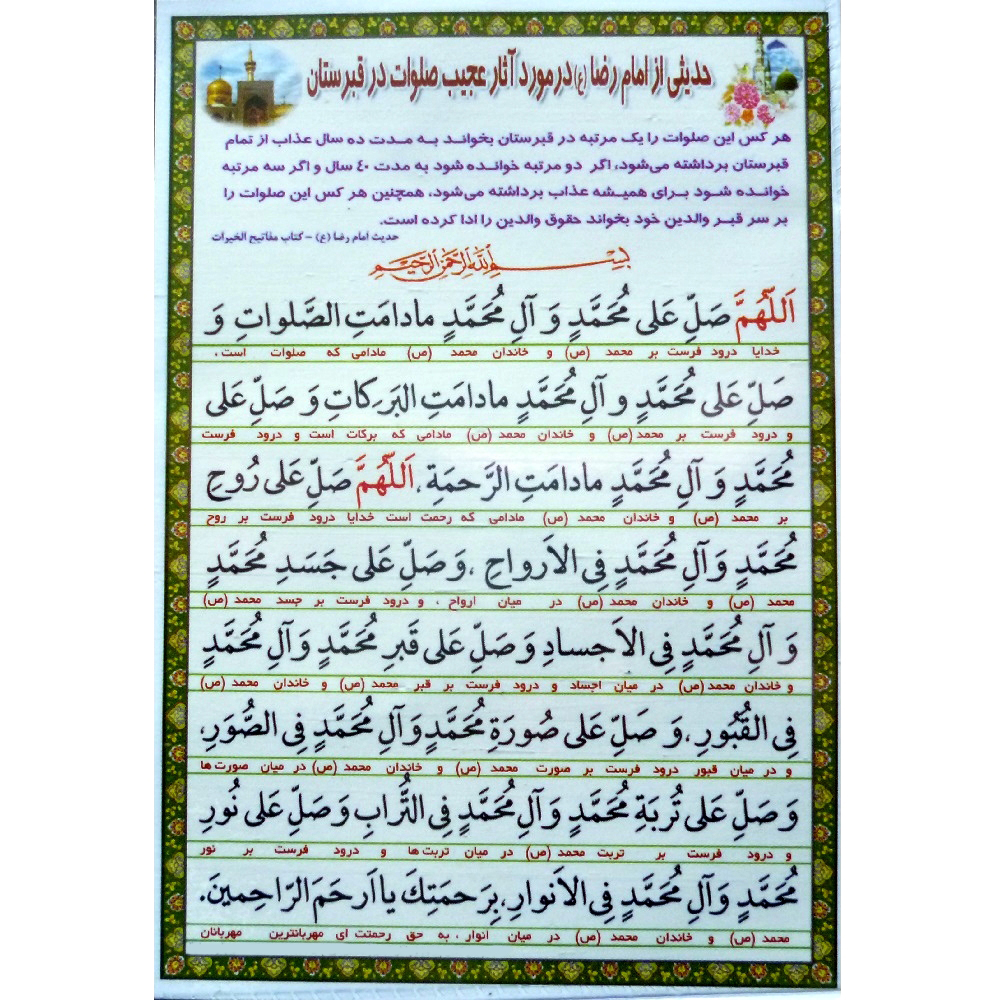 حدیثی از امام رضا (ع) در مورد آثار عجیب صلوات در قبرستان
هر کس این صلوات را یک مرتبه در قبرستان بخواند به مدت ده سال عذاب از تمام
قبرستان برداشته می‌شود، اگر دو مرتبه خوانده شود به مدت ۴۰ سال و اگر سه مرتبه
خوانده شود برای همیشه عذاب برداشته می‌شود، همچنین هر کس این صلوات را
بر سر قبر والدین خود بخواند حقوق والدین را ادا کرده است.
حدیث امام رضا (ع) - کتاب مفاتیح الخیرات
بسم الله الرحمن الرحیم
اَللّهُمَّ صَلِّ عَلی مُحَمَّدٍ وَ آلِ مُحَمَّدٍ مادامَتِ الصَّلواتِ وَ
خدایا درود فرست بر محمد (ص) و خاندان محمد (ص) مادامی که صلوات است،
صَلِّ عَلی مُحَمَّدٍ و آلِ مُحَمَّدٍ مادامَتِ البَرَکاتِ وَ صَلِّ عَلی
و درود فرست بر محمد (ص) و خاندان محمد (ص) مادامی که برکات است و درود فرست
مُحَمَّدٍ وَ آلِ مُحَمَّدٍ مادامَتِ الرَّحمَةِ، اَللّهُمَّ صَلِّ عَلی رُوحِ
بر محمد (ص) و خاندان محمد (ص) مادامی که رحمت است خدایا درود فرست بر روح
مُحَمَّدٍ وَ آلِ مُحَمَّدٍ فِی الاَرواحِ ، وَ صَلِّ عَلی جَسَدِ مُحَمَّدٍ
محمد (ص) و خاندان محمد (ص) در میان ارواح ، و درود فرست بر جسد محمد (ص)
وَ آلِ مُحَمَّدٍ فِی الاَجسادِ وَ صَلِّ عَلی قَبرِ مُحَمَّدٍ وَ آلِ مُحَمَّدٍ
و خاندان محمد (ص) در میان اجساد و درود فرست بر قبر محمد (ص) و خاندان محمد (ص)
فِی القُبُورِ ، وَ صَلِّ عَلی صُورَةِ مُحَمَّدٍ وَ آلِ مُحَمَّدٍ فِی الصُّوَرِ،
و در میان قبور درود فرست بر صورت محمد (ص) و خاندان محمد (ص) در میان صورت ها
وَ صَلِّ عَلی تُربَةِ مُحَمَّدٍ وَ آلِ مُحَمَّدٍ فِی التُّرابِ وَ صَلِّ عَلی نُورِ
و درود فرست بر تربت محمد (ص) در میان تربت ها و درود فرست بر نور
مُحَمَّدٍ وَ آلِ مُحَمَّدٍ فِی الاَنوارِ، بِرَحمَتِكَ یا اَرحَمَ الرّاحِمینَ.
محمد (ص) و خاندان محمد (ص) در میان انوار ، به حق رحمتت ای مهربانترین مهربانان